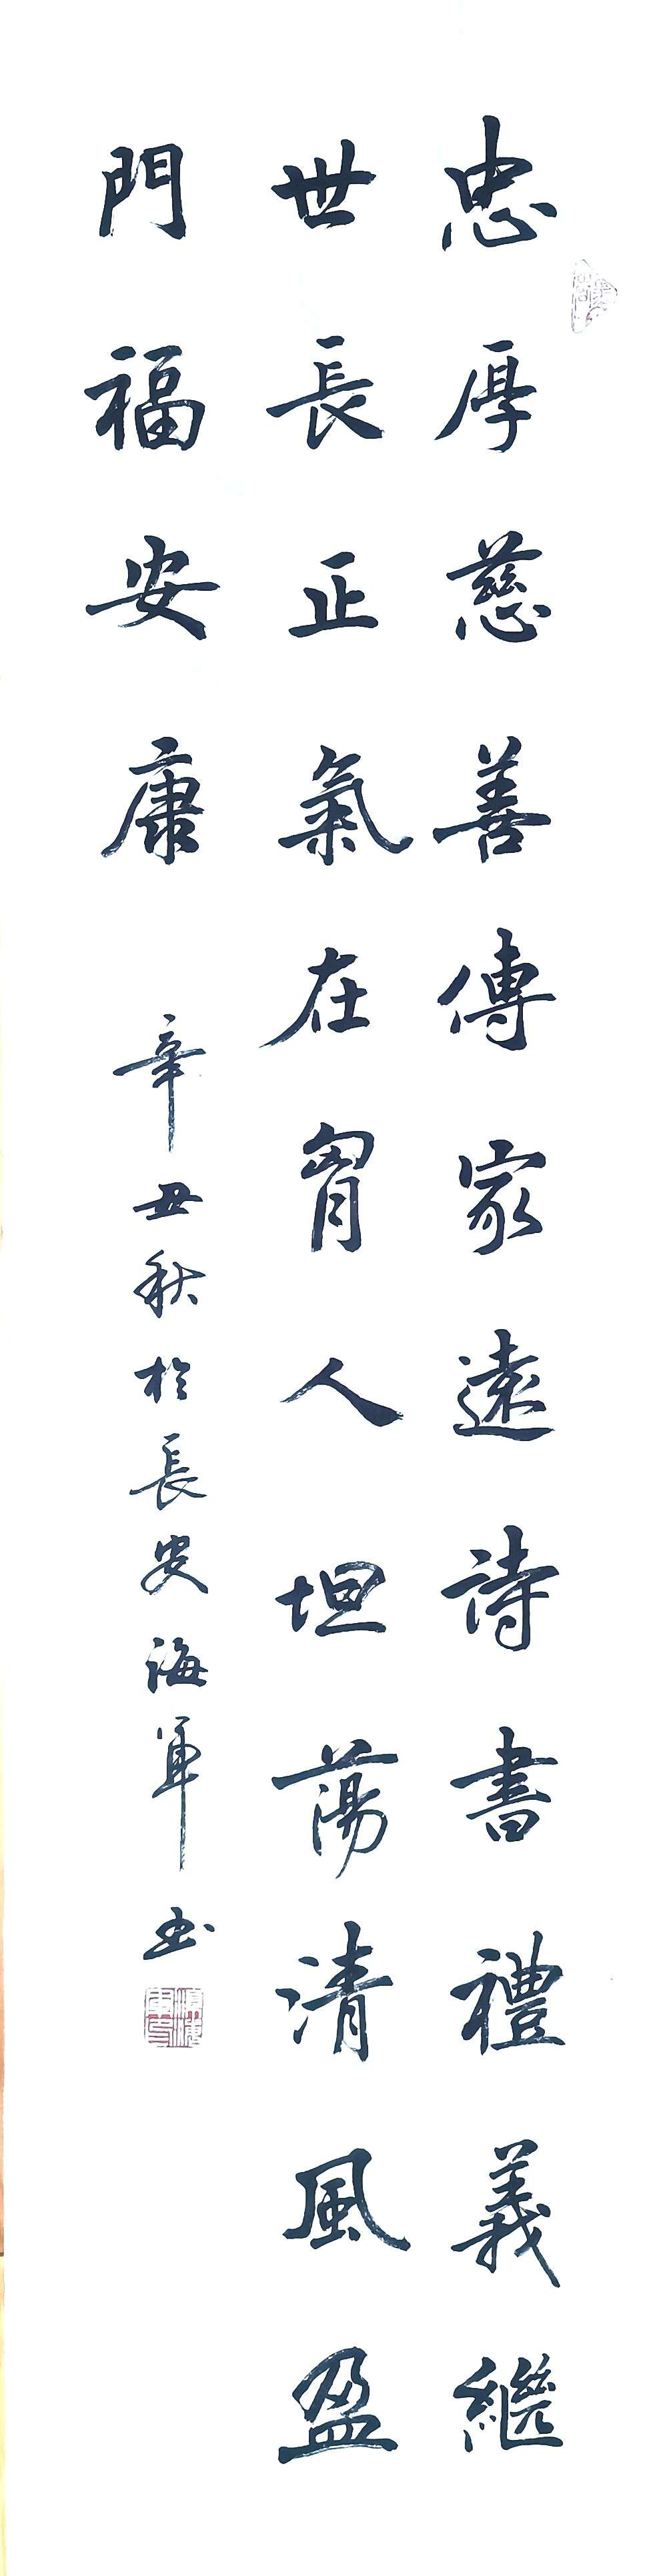 忠厚慈善傳家遠詩書禮義繼
世長正氣在胷人坦蕩清風盈
門福安康
辛丑秋於長安海軍书